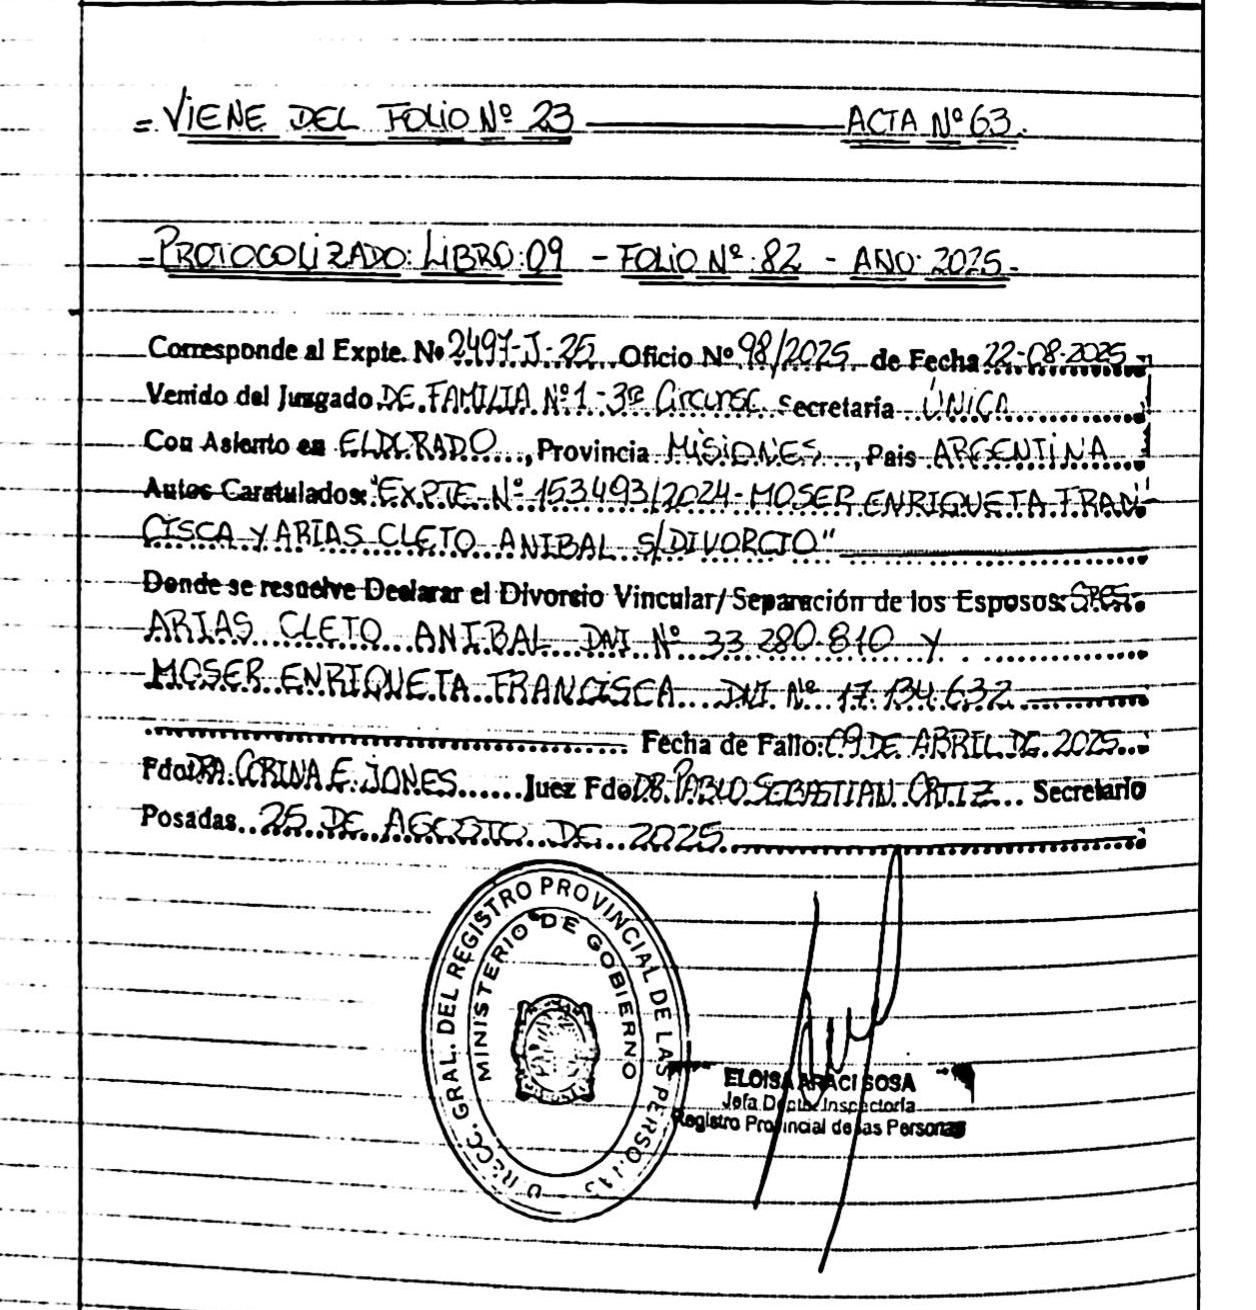 = VIENE DEL FOLIO Nº 23 ACTA Nº 63.
- PROTOCOLIZADO: LIBRO: 09 - FOLIO Nº: 82 - AÑO: 2025.
Corresponde al Expte. Nº 2497-J-25 Oficio Nº 98/2025 de Fecha 22-08-2025
Venido del Juzgado DE FAMILIA Nº 1 - 3ra Circunsc. Secretaría ÚNICA
Con Asiento en ELDORADO, Provincia MISIONES, Pais ARGENTINA
Autos Caratulados: "EXPTE. Nº 153493/2024- MOSER ENRIQUETA FRAN-
CISCA Y ARIAS CLETO ANIBAL S/DIVORCIO"
Donde se resuelve Declarar el Divorcio Vincular/ Separación de los Esposos: Sres.
ARIAS CLETO ANIBAL DNI Nº 33.280.810 Y
MOSER ENRIQUETA FRANCISCA DNI Nº 17.134.632
Fecha de Fallo: 09 DE ABRIL DE 2025
Fdo: DRA. CORINA E. JONES Juez Fdo DR. PABLO SEBASTIAN ORTIZ Secretario
Posadas 25 DE AGOSTO DE 2025
DIRECC. GRAL. DEL REGISTRO PROVINCIAL DE LAS PERSONAS
MINISTERIO DE GOBIERNO
ELOISA ARACI SOSA
Jefa Depto. Inspectoría
Registro Provincial de las Personas